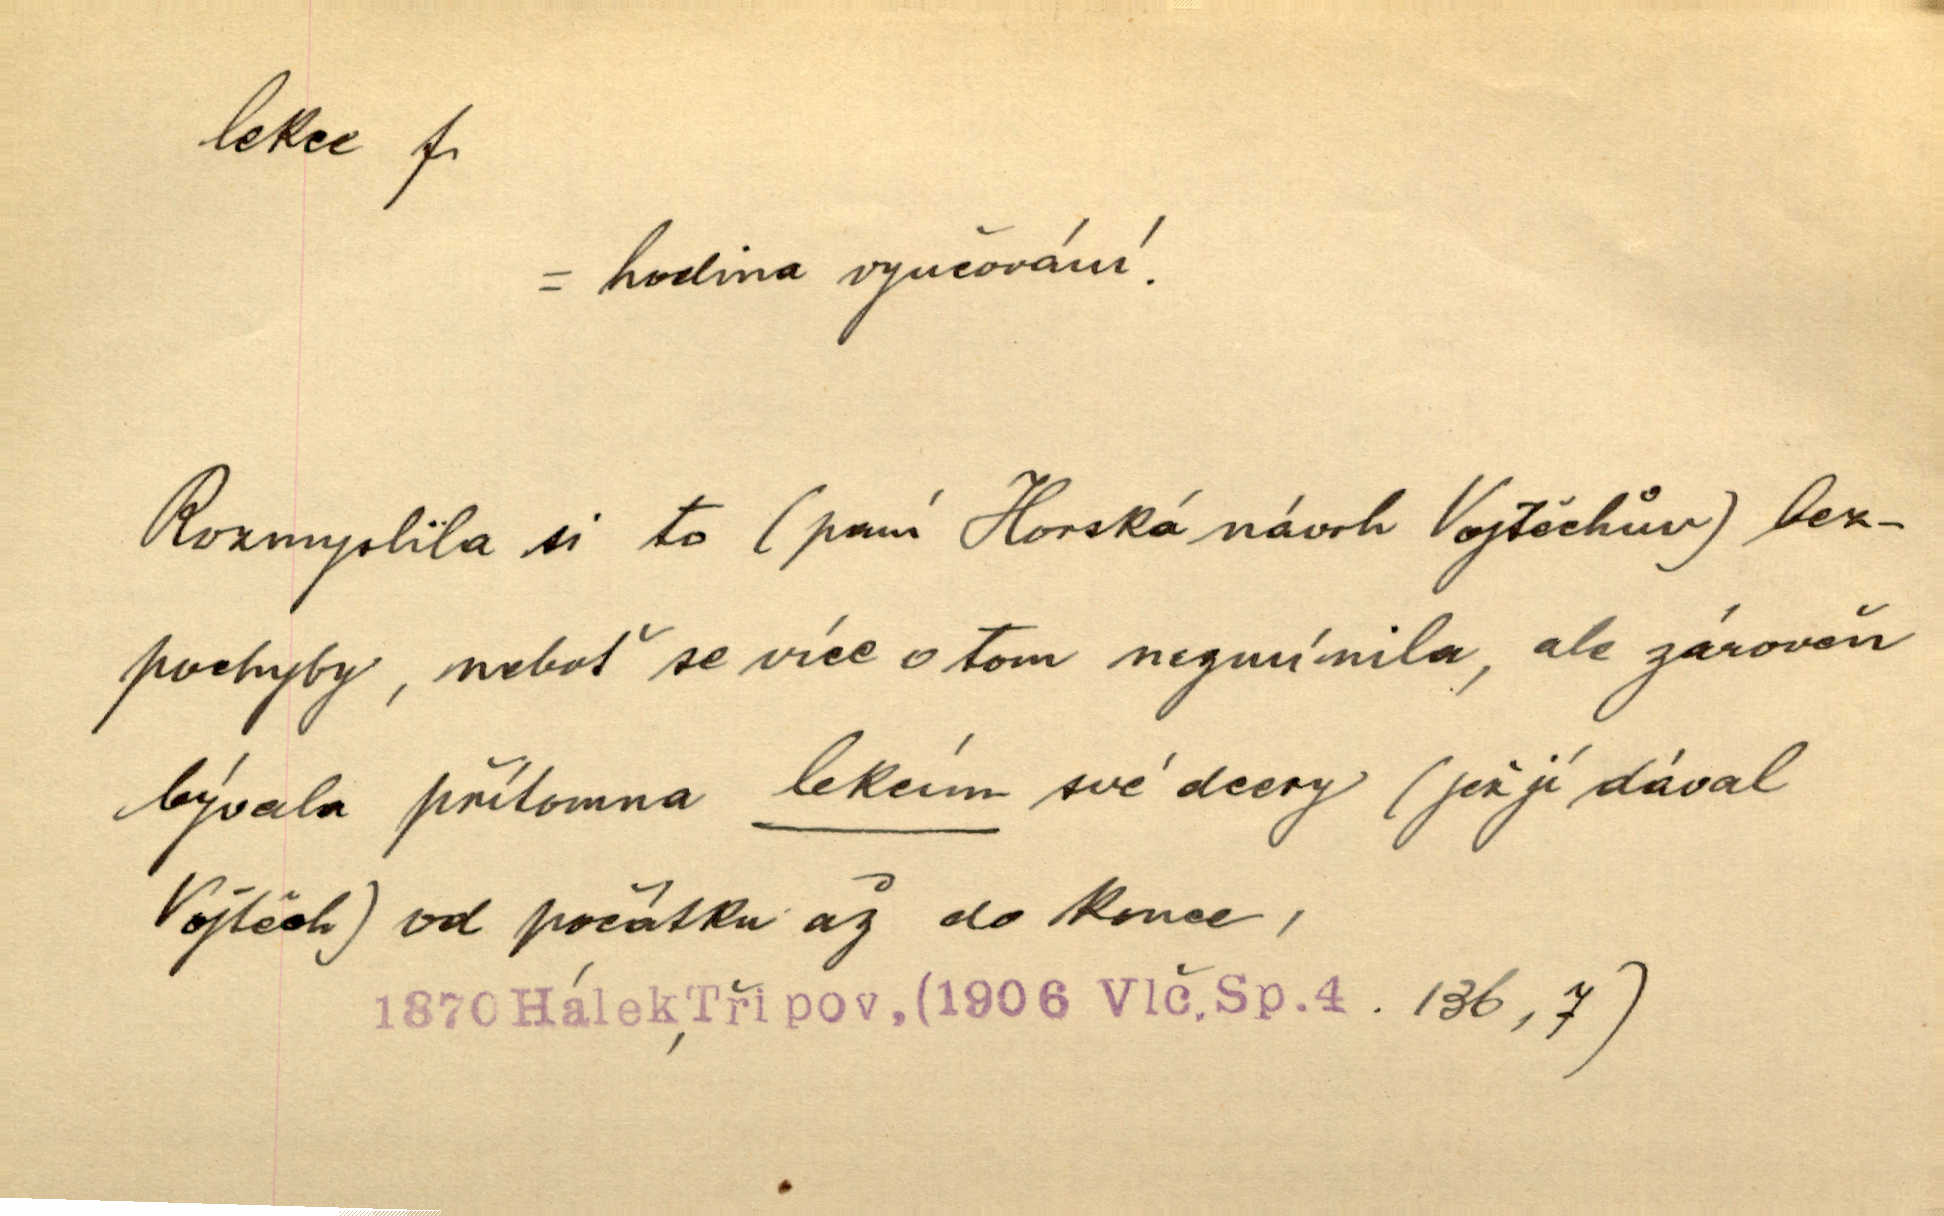 lekce f.
= hodina vyučování.
Rozmyslila si to (paní Horská návrh Vojtěchův) bez-
pochyby, neboť se více o tom nezmínila, ale zároveň
bývala přítomna lekcím své dcery (jež jí dával
Vojtěch) od počátku až do konce,
1870 Hálek, Tři pov., (1906 Vlč. Sp. 4 . 136, 7)